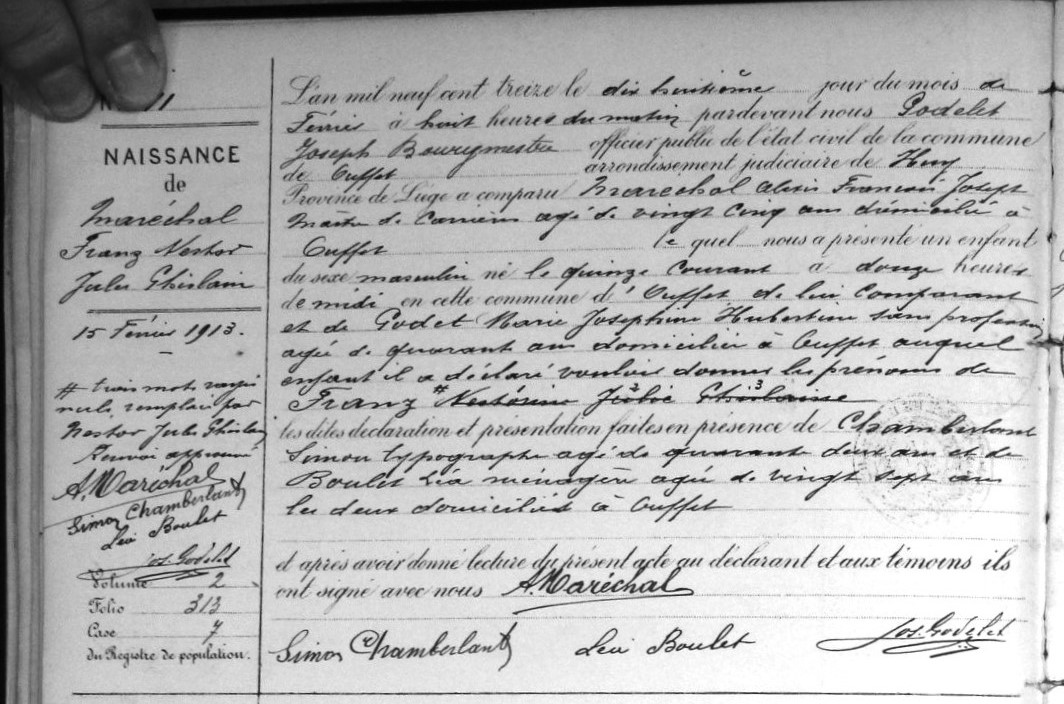 NAISSANCE
de
Maréchal
Franz Nestor
Jules Ghislain
15 Février 1913.
# trois mots rayés
nuls, remplacés par
Nestor Jules Ghislain
Renvoi approuvé
A. Maréchal
Simon Chamberland
Léa Boulet
Jos. Godelet
Volume 2
Folio 313
Case 7
du Registre de population.
L'an mil neuf cent treize le dix huitième jour du mois de
Février à huit heures du matin pardevant nous Godelet
Joseph Bourgmestre officier public de l'état civil de la commune
de Ouffet arrondissement judiciaire de Huy
Province de Liége a comparu Maréchal Alexis François Joseph
Maître de Carrières agé de vingt cinq ans domicilié à
Ouffet le quel nous a présenté un enfant
du sexe masculin né le quinze courant à douze heures
de midi en cette commune d'Ouffet de lui Comparant
et de Godet Marie Joséphine Hubertine sans profession
agée de quarant ans domicilier à Ouffet auquel
enfant il a déclaré vouloir donner les prénoms de
Franz # Nestorine Julie Ghislaine
les dites déclaration et présentation faites en présence de Chamberland
Simon typographe agé de quarante deux ans et de
Boulet Léa ménagère agée de vingt sept ans
les deux domiciliés à Ouffet
et après avoir donné lecture du présent acte au déclarant et aux témoins ils
ont signé avec nous A. Maréchal
Simon Chamberland Léa Boulet Jos. Godelet